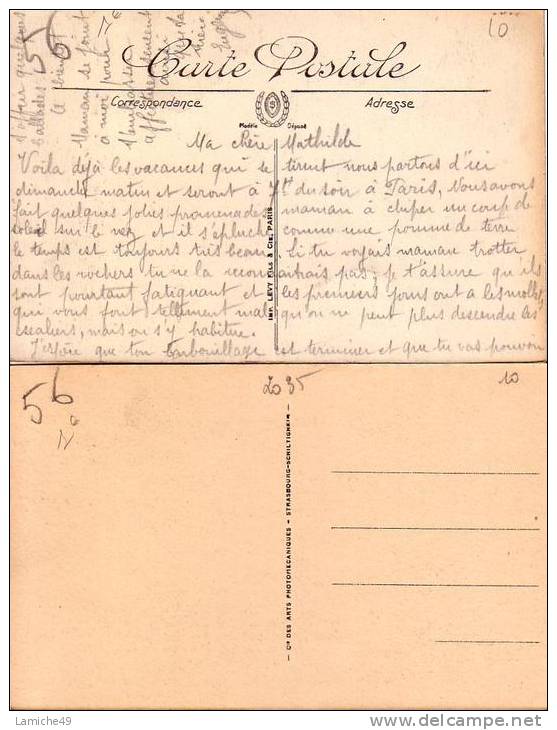 56
10
Carte Postale
Correspondance
Adresse
Modèle Déposé
Ma chère Mathilde
Voila déjà les vacances qui se tirent nous partons d'ici
dimanche matin et seront à 7h du soir à Paris, Nous avons
fait quelques jolies promenades maman a chiper un coup de
soleil sur le nez et il s'épluche comme une pomme de terre
le temps est toujours très beau Si tu voyais maman trotter
dans les rochers tu ne la reconnaitrais pas; je t'assure qu'ils
sont pourtant fatiguant et les premiers jours ont a les mollets
qui vous font tellement mal qu'on ne peut plus descendre les
escaliers, mais on s'y habitue.
J'espère que ton barbouillage est terminer et que tu vas pouvoir
t'offrir quelques
ballades
a bientot
Maman se joint
a moi pour
t'embrasser
affectueusement
IMP. LEVY FILS & CIE, PARIS
56
2035
10
CIE DES ARTS PHOTOMECANIQUES - STRASBOURG-SCHILTIGHEIM
Lamiche49
www.delcampe.net